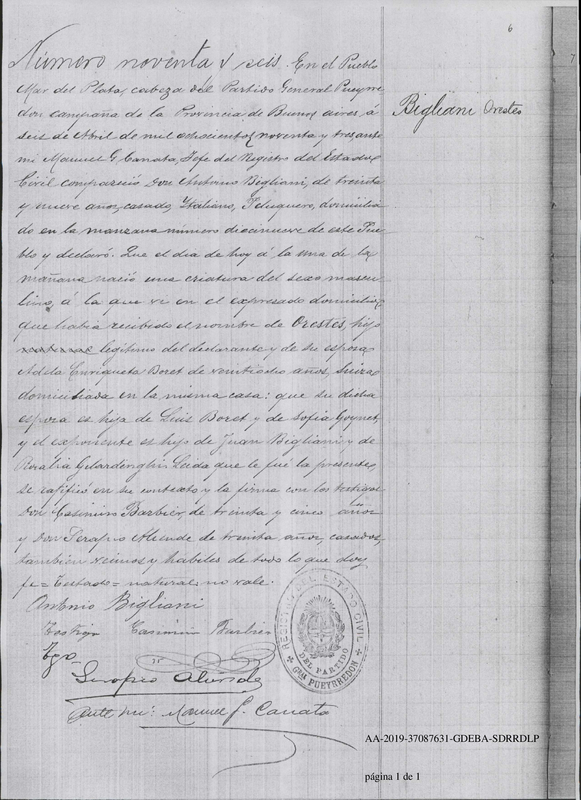 6
7
Número noventa y seis. En el Pueblo
Mar del Plata, cabeza del Partido General Pueyrre
don campaña de la Provincia de Buenos aires, á
seis de Abril de mil ochocientos noventa y tres ante
mi Manuel G. Canata, Jefe del Registro del Estado
Civil compareció Don Antonio Bigliani, de treinta
y nueve años, casado, Italiano, Peluquero, domicilia
do en la manzana número diecinueve de este Pue
blo y declaró: Que el dia de hoy á la una de la
mañana nació una criatura del sexo mascu
lino, á la que vi en el expresado domicilio,
que habia recibido el nombre de Orestes, hijo
legitimo del declarante y de su esposa
Adela Enriqueta Boret de veintidos años, suiza
domiciliada en la misma casa: que su dicha
esposa es hija de Luis Boret y de Sofia Goynet,
y el exponente es hijo de Juan Bigliani y de
Rosalia Gelardenghi. Leida que le fué la presente,
se ratificó en su contexto y la firma con los testigos
Don Casimiro Barbier, de treinta y cinco años
y Don Serapio Alciede de treinta años, casados,
tambien vecinos y hábiles de todo lo que doy
fe = Testado = natural no vale.
Bigliani Orestes
Antonio Bigliani
Testigo Casimiro Barbier
Tgo
Serapio
Ante mi: Manuel G. Canata
REGISTRO DEL ESTADO CIVIL
DEL PARTIDO
GRAL PUEYRREDON
AA-2019-37087631-GDEBA-SDRRDLP
página 1 de 1